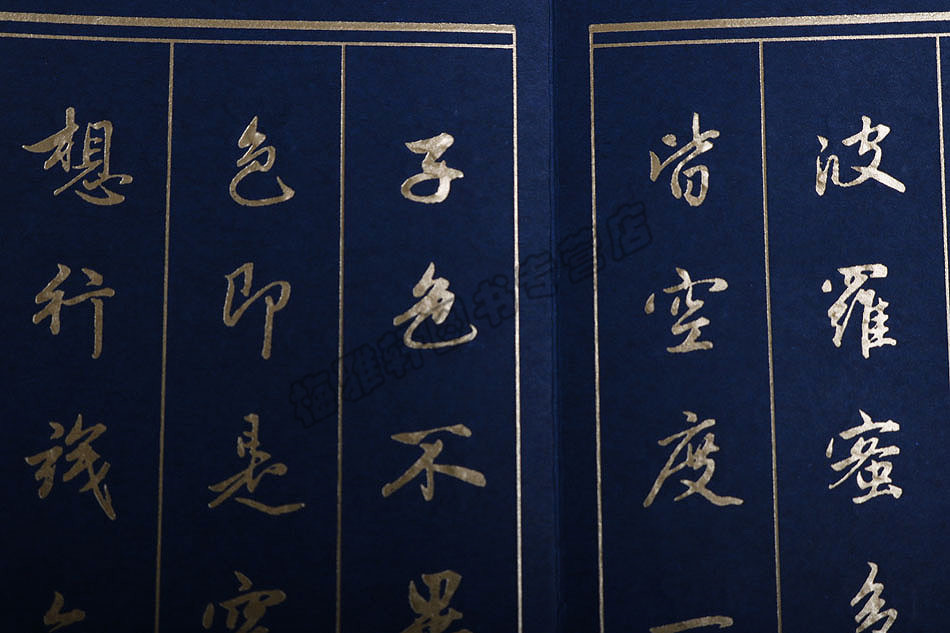 波羅蜜多
皆空度一
子色不異
色即是空
想行識